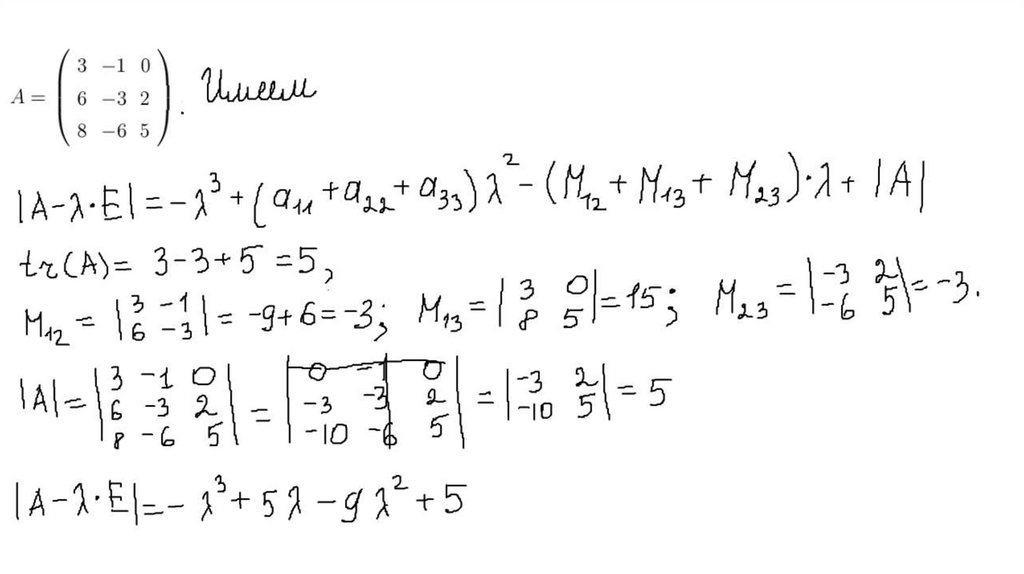 A = ( 3 −1 0
6 −3 2
8 −6 5 ) . Имеем
|A-λ·E| = -λ³ + (a₁₁ + a₂₂ + a₃₃)λ² - (M₁₂ + M₁₃ + M₂₃)·λ + |A|
tr(A) = 3-3+5 = 5,
M₁₂ = |3 -1; 6 -3| = -9+6 = -3; M₁₃ = |3 0; 8 5| = 15; M₂₃ = |-3 2; -6 5| = -3.
|A| = |3 -1 0; 6 -3 2; 8 -6 5| = |0 -1 0; -3 -3 2; -10 -6 5| = |-3 2; -10 5| = 5
|A-λ·E| = -λ³ + 5λ - 9λ² + 5